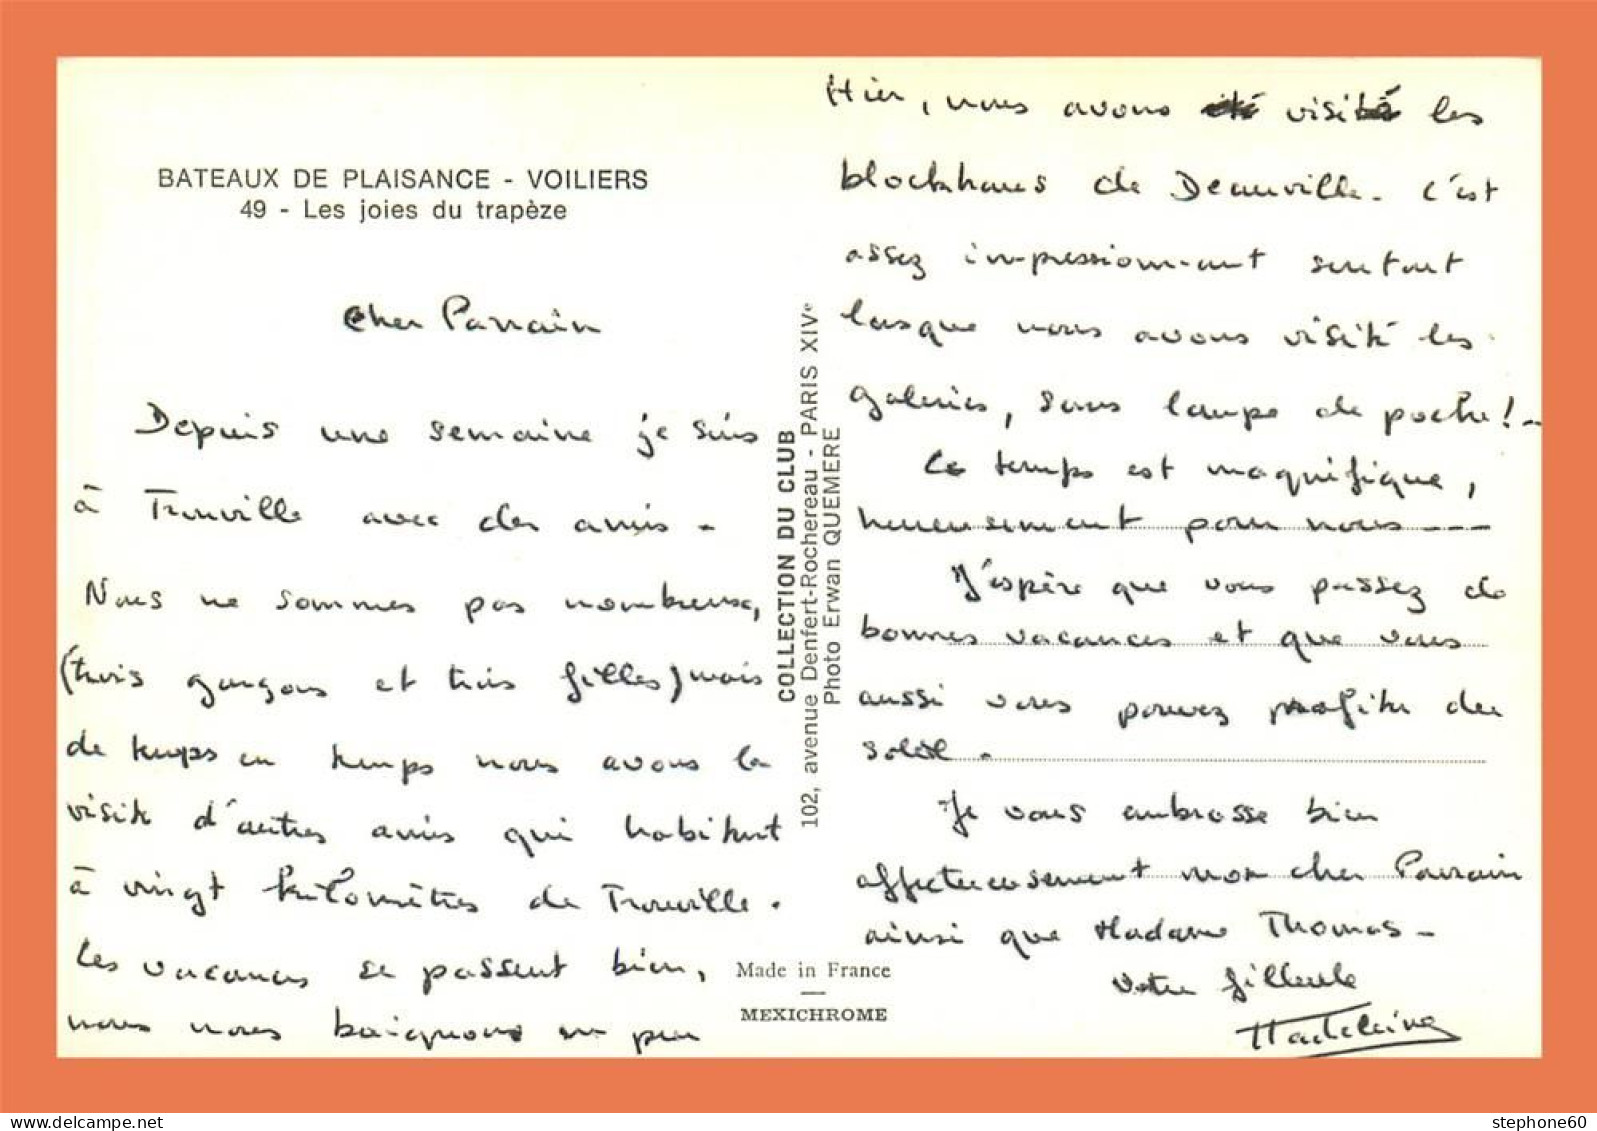 BATEAUX DE PLAISANCE - VOILIERS
49 - Les joies du trapèze
Cher Parrain
Depuis une semaine je suis
à Trouville avec des amis.
Nous ne sommes pas nombreux,
(trois garçons et trois filles) mais
de temps en temps nous avons la
visite d'autres amis qui habitent
à vingt kilomètres de Trouville.
Les vacances se passent bien,
nous nous baignons un peu
COLLECTION DU CLUB
102, avenue Denfert-Rochereau - PARIS XIVe
Photo Erwan QUEMERE
Made in France
MEXICHROME
Hier, nous avons visité les
blockhaus de Deauville. C'est
assez impressionnant surtout
lorsque nous avons visité les
galeries, sans lampe de poche! -
Le temps est magnifique,
heureusement pour nous ---
J'espère que vous passez de
bonnes vacances et que vous
aussi vous pouvez profiter du
soleil.
Je vous embrasse bien
affectueusement mon cher Parrain
ainsi que Madame Thomas -
Votre filleule
Madeleine
stephone60